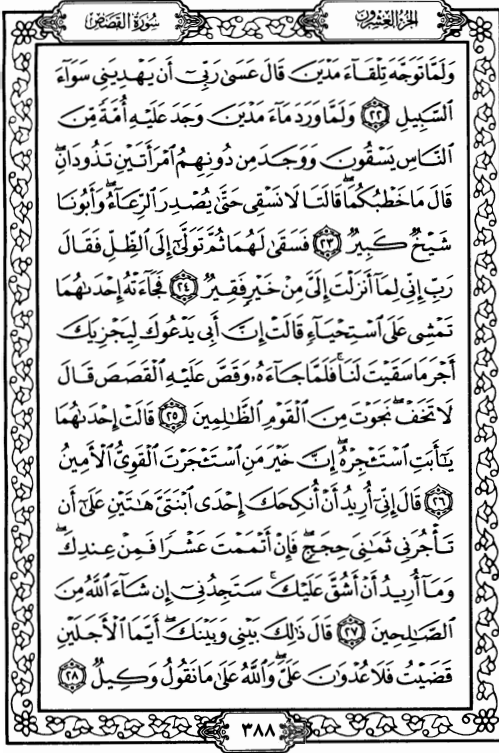 سُورَةُ القَصَصِ
الجُزءُ العِشْرُونَ
وَلَمَّا تَوَجَّهَ تِلْقَآءَ مَدْيَنَ قَالَ عَسَىٰ رَبِّىٓ أَن يَهْدِيَنِى سَوَآءَ
ٱلسَّبِيلِ ٢٢ وَلَمَّا وَرَدَ مَآءَ مَدْيَنَ وَجَدَ عَلَيْهِ أُمَّةً مِّنَ
ٱلنَّاسِ يَسْقُونَ وَوَجَدَ مِن دُونِهِمُ ٱمْرَأَتَيْنِ تَذُودَانِۖ
قَالَ مَا خَطْبُكُمَاۖ قَالَتَا لَا نَسْقِى حَتَّىٰ يُصْدِرَ ٱلرِّعَآءُۖ وَأَبُونَا
شَيْخٌ كَبِيرٌ ٢٣ فَسَقَىٰ لَهُمَا ثُمَّ تَوَلَّىٰٓ إِلَى ٱلظِّلِّ فَقَالَ
رَبِّ إِنِّى لِمَآ أَنزَلْتَ إِلَىَّ مِنْ خَيْرٍ فَقِيرٌ ٢٤ فَجَآءَتْهُ إِحْدَىٰهُمَا
تَمْشِى عَلَى ٱسْتِحْيَآءٍ قَالَتْ إِنَّ أَبِى يَدْعُوكَ لِيَجْزِيَكَ
أَجْرَ مَا سَقَيْتَ لَنَاۚ فَلَمَّا جَآءَهُۥ وَقَصَّ عَلَيْهِ ٱلْقَصَصَ قَالَ
لَا تَخَفْۖ نَجَوْتَ مِنَ ٱلْقَوْمِ ٱلظَّٰلِمِينَ ٢٥ قَالَتْ إِحْدَىٰهُمَا
يَٰٓأَبَتِ ٱسْتَـْٔجِرْهُۖ إِنَّ خَيْرَ مَنِ ٱسْتَـْٔجَرْتَ ٱلْقَوِىُّ ٱلْأَمِينُ
٢٦ قَالَ إِنِّىٓ أُرِيدُ أَنْ أُنكِحَكَ إِحْدَى ٱبْنَتَىَّ هَٰتَيْنِ عَلَىٰٓ أَن
تَأْجُرَنِى ثَمَٰنِىَ حِجَجٍۖ فَإِنْ أَتْمَمْتَ عَشْرًا فَمِنْ عِندِكَۖ
وَمَآ أُرِيدُ أَنْ أَشُقَّ عَلَيْكَۚ سَتَجِدُنِىٓ إِن شَآءَ ٱللَّهُ مِنَ
ٱلصَّٰلِحِينَ ٢٧ قَالَ ذَٰلِكَ بَيْنِى وَبَيْنَكَۖ أَيَّمَا ٱلْأَجَلَيْنِ
قَضَيْتُ فَلَا عُدْوَٰنَ عَلَىَّۖ وَٱللَّهُ عَلَىٰ مَا نَقُولُ وَكِيلٌ ٢٨
٣٨٨